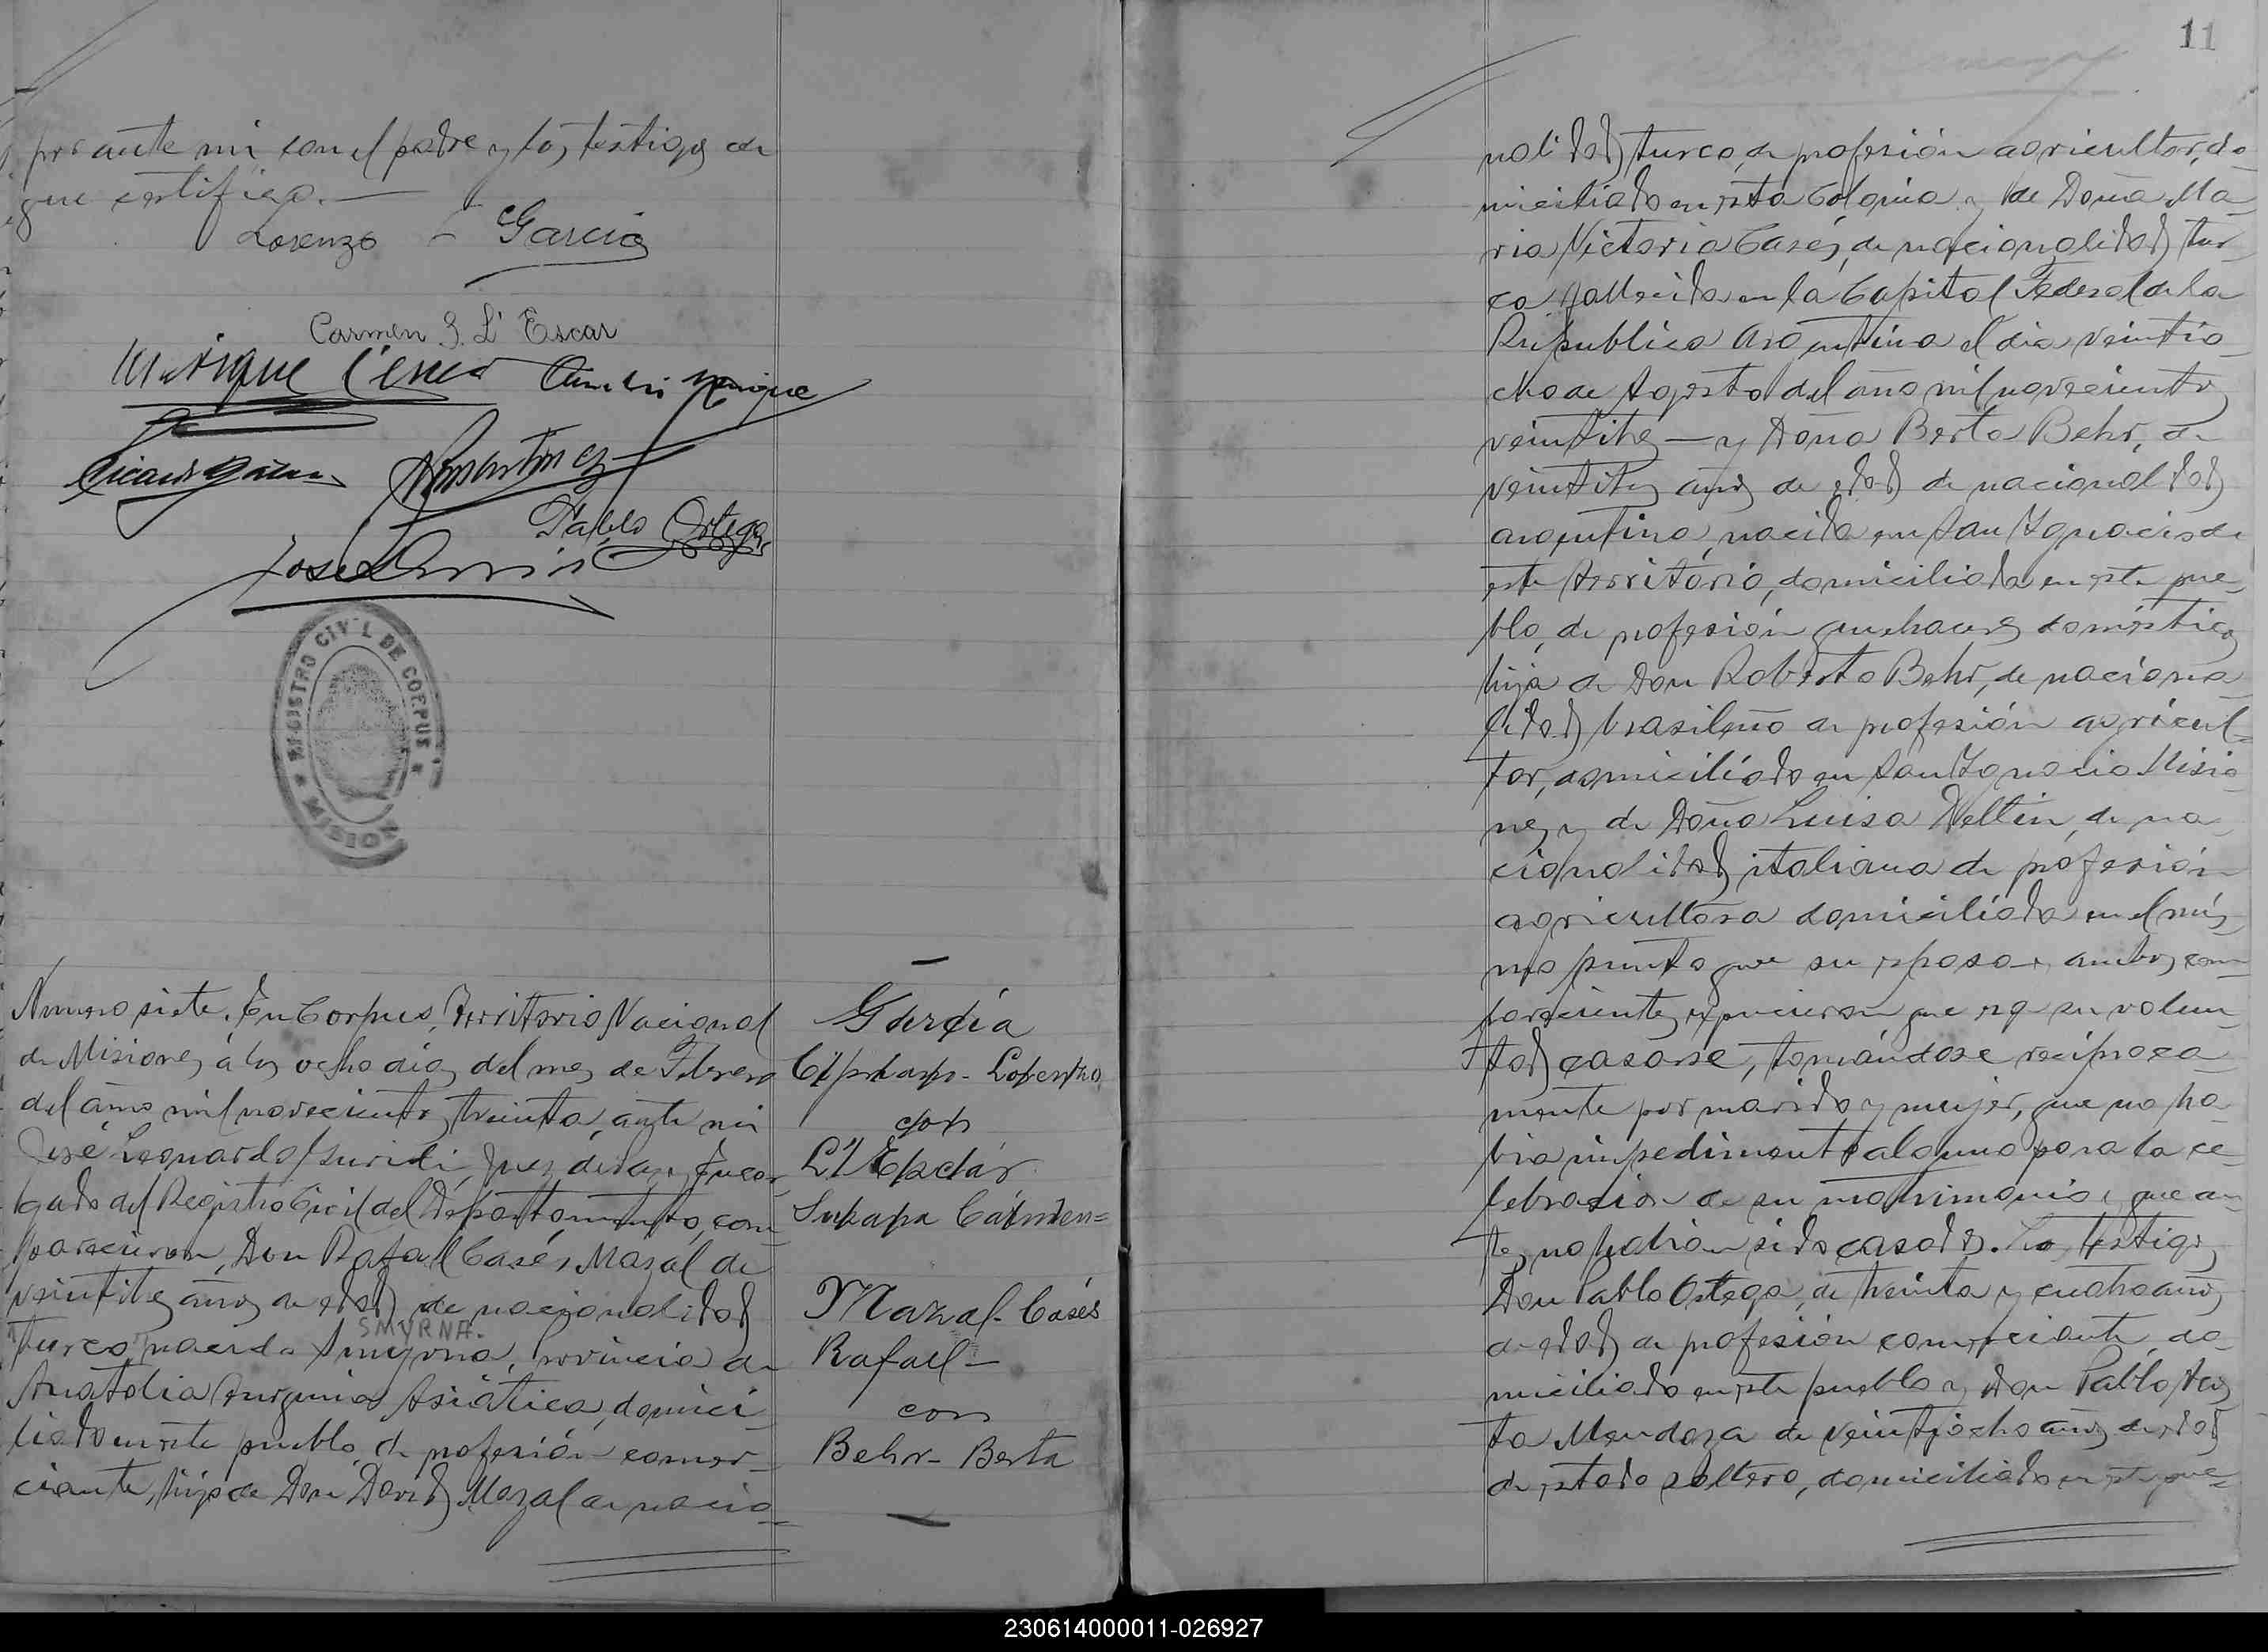 por ante mi con el padre y los testigos de
que certifico.—
Lorenzo García
Carmen S. L'Escar
Manrique
Pablo Ortega
José L.
REGISTRO CIVIL DE CORPUS
MISIONES
Numero siete. En Corpus, Territorio Nacional
de Misiones, á los ocho dias del mes de Febrero
del año mil novecientos treinta, ante mi
José Leonardo Juez de Paz, Encar-
gado del Registro Civil del Departamento, com-
parecieron, Don Rafael Casés Mazal de
veintitres años de edad de nacionalidad
SMYRNA.
turco nacido Smyrna, provincia de
Anatolia Asiática, domici-
liado en este pueblo de profesión comer-
ciante, hijo de Don David Mazal de nacio-
García
Cipriano-Lorenzo
con
L'Escar
Carmen=
Mazal-Casés
Rafael-
con
Behr-Berta
11
nalidad turco, de profesión agricultor, do-
miciliado en esta Colonia y de Doña Ma-
ria Victoria Casés, de nacionalidad tur-
ca fallecida en la Capital Federal de la
Republica Argentina el dia veintio-
cho de Agosto del año mil novecientos
veintitres — y Doña Berta Behr, de
veintitres años de edad de nacionalidad
argentina, nacida en San Ignacio de
este territorio, domiciliada en este pue-
blo, de profesión quehaceres domésticos
hija de Don Roberto Behr, de naciona-
lidad brasileño de profesión agricul-
tor, domiciliado en San Ignacio Misio-
nes y de Doña Luisa de na-
cionalidad italiana de profesión
agricultora domiciliada en el mis-
mo punto que su esposo y ambos com-
parecientes expusieron que es su volun-
tad casarse, tomándose recíproca-
mente por marido y mujer, que no ha-
bia impedimento alguno para la ce-
lebración de su matrimonio, que an-
tes no habían sido casados. Los testigos
Don Pablo Ortega, de treinta y cuatro años
de edad de profesión comerciante, do-
miciliado en este pueblo y Don Pablo Acos-
ta Mendoza de veintiocho años de edad
de estado soltero, domiciliado en este pue-
230614000011-026927